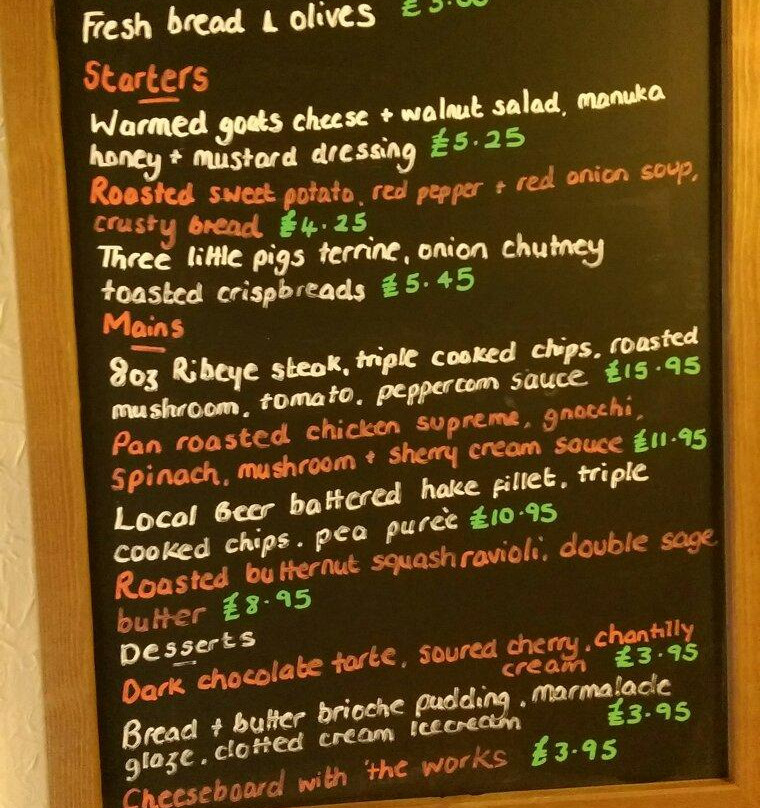 Fresh bread & olives
Starters
Warmed goats cheese + walnut salad, manuka
honey + mustard dressing £5.25
Roasted sweet potato, red pepper + red onion soup,
crusty bread £4.25
Three little pigs terrine, onion chutney
toasted crispbreads £5.45
Mains
8oz Ribeye steak, triple cooked chips, roasted
mushroom, tomato, peppercorn sauce £15.95
Pan roasted chicken supreme, gnocchi,
Spinach, mushroom + sherry cream sauce £11.95
Local Beer battered hake fillet, triple
cooked chips, pea pureè £10.95
Roasted butternut squash ravioli, double sage
butter £8.95
Desserts
Dark chocolate tarte, soured cherry, chantilly
cream £3.95
Bread + butter brioche pudding, marmalade
glaze, clotted cream icecream £3.95
Cheeseboard with 'the works £3.95